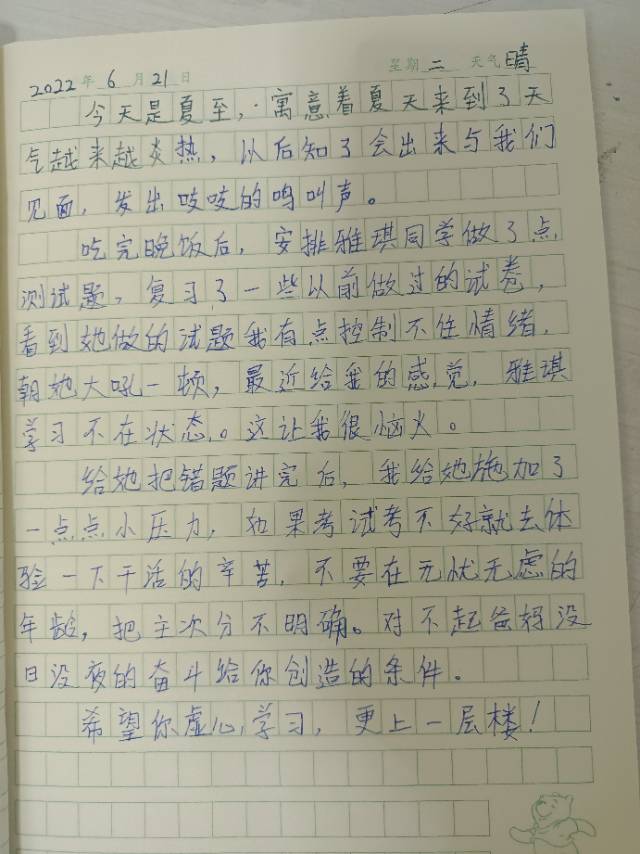 2022年6月21日 星期二 天气晴
今天是夏至,·寓意着夏天来到了天
气越来越炎热,以后知了会出来与我们
见面,发出吱吱的鸣叫声。
吃完晚饭后,安排雅琪同学做了点
测试题,复习了一些以前做过的试卷,
看到她做的试题我有点控制不住情绪,
朝她大吼一顿,最近给我的感觉,雅琪
学习不在状态。这让我很恼火。
给她把错题讲完后,我给她施加了
一点点小压力,如果考试考不好就去体
验一下干活的辛苦,不要在无忧无虑的
年龄,把主次分不明确。对不起爸妈没
日没夜的奋斗给你创造的条件。
希望你虚心学习,更上一层楼!